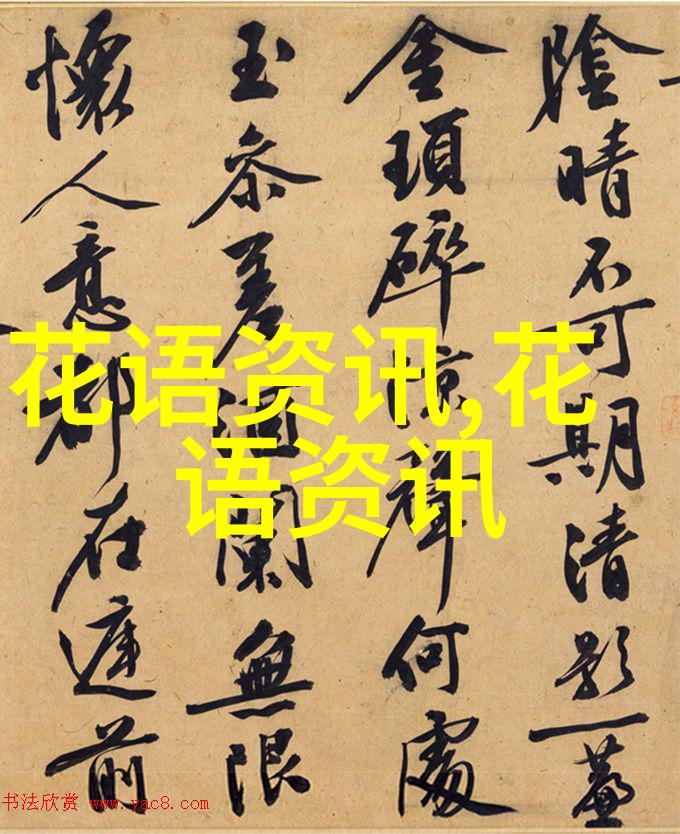 花语资讯,花
语资讯
陰晴不可期清影一
金瑣碎涼聲何處
玉參差酒闌無限
懷人意都在前
书法欣赏 www.yac8.com